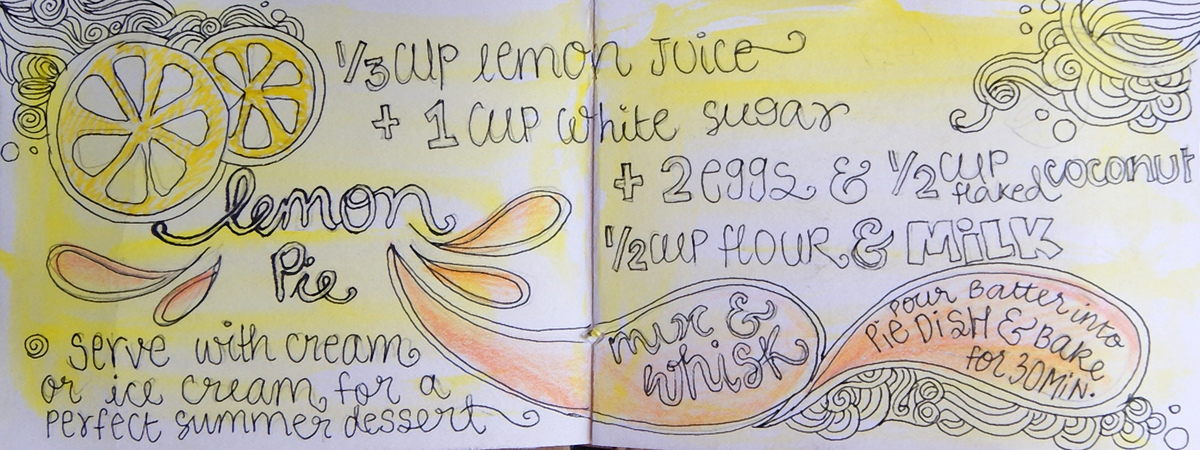 1/3 CUP lemon JUICE
+ 1 CUP white sugar
+ 2 eggs & 1/2 CUP flaked coconut
1/2 CUP flOUR & MiLK
lemon
Pie
mix &
whisk
pour Batter into
PiE DiSH & BAKE
for 30MiN.
serve with cream
or ice cream, for a
perfect summer dessert